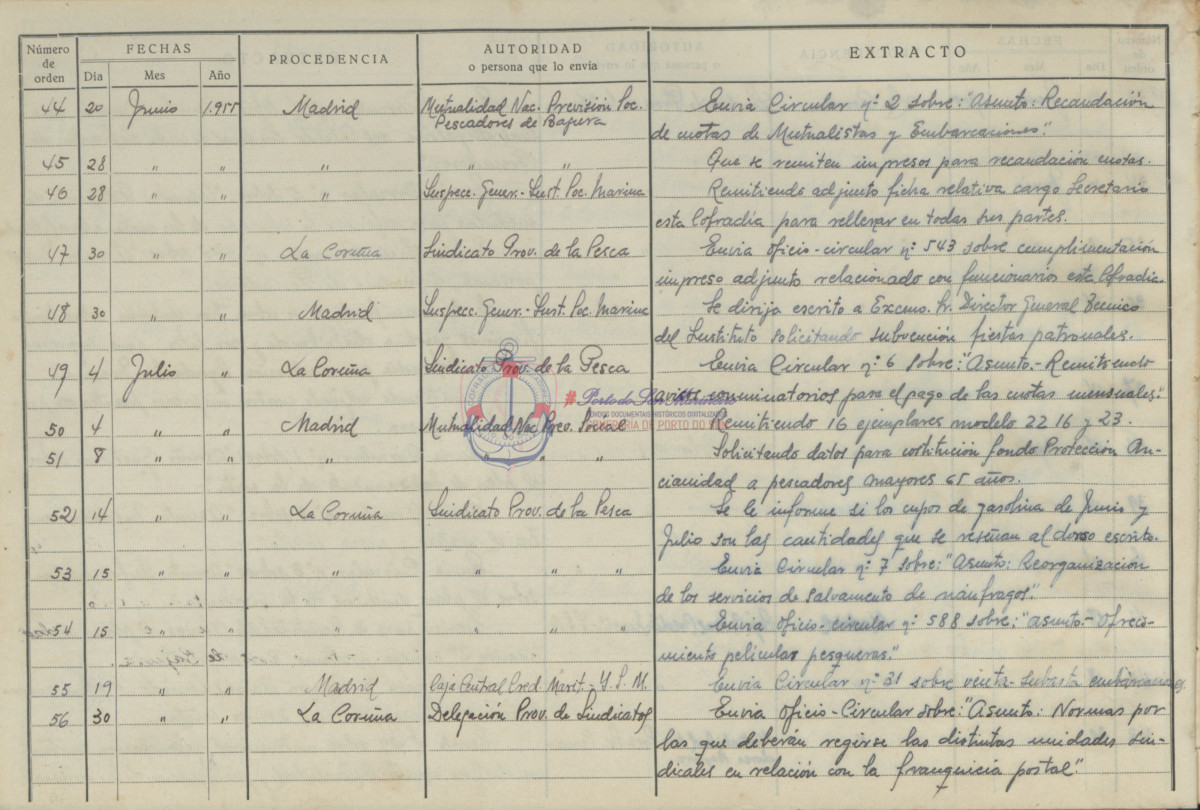 Número de orden FECHAS PROCEDENCIA AUTORIDAD o persona que lo envía EXTRACTO
Día Mes Año
44 20 Junio 1.955 Madrid Mutualidad Nac. Previsión Soc. Envia Circular nº 2 sobre: "Asunto: Recaudación
Pescadores de Bajura de cuotas de Mutualistas y Embarcaciones".
45 28 " " " " " Que se remiten impresos para recaudación cuotas.
46 28 " " " Inspecc. Gener.- Inst. Soc. Marina Remitiendo adjunto ficha relativa cargo Secretario
esta Cofradía para rellenar en todas sus partes.
47 30 " " La Coruña Sindicato Prov. de la Pesca Envia oficio-circular nº 543 sobre cumplimentación
impreso adjunto relacionado con funcionarios esta Cofradia.
48 30 " " Madrid Inspecc. Gener.- Inst. Soc. Marina Se dirija escrito a Excmo. Sr. Director General Tecnico
del Instituto solicitando subvención fiestas patronales.
49 4 Julio " La Coruña Sindicato Prov. de la Pesca Envia Circular nº 6 sobre: "Asunto.- Remitiendo
avisos conminatorios para el pago de las cuotas mensuales".
#Porto do Son Marinero
FONDOS DOCUMENTAIS HISTÓRICOS DIGITALIZADOS
CONFRARÍA DE PORTO DO SON
50 4 " " Madrid Mutualidad Nac. Prev. Social Remitiendo 16 ejemplares modelo 22 16 y 23.
51 8 " " " " " " Solicitando datos para costitución fondo Protección An-
cianidad a pescadores mayores 65 años.
52 14 " " La Coruña Sindicato Prov. de la Pesca Se le informe si los cupos de gasolina de Junio y
Julio son las cantidades que se reseñan al dorso escrito.
53 15 " " " " " " Envia Circular nº 7 sobre: "Asunto: Reorganización
de los servicios de Salvamento de náufragos".
54 15 " " " " " " Envia oficio-circular nº 588 sobre: "asunto.- Ofreci-
miento peliculas pesqueras."
55 19 " " Madrid Caja Central Cred. Marít.- Y. P. M. Envia Circular nº 31 sobre venta-subasta embarcaciones.
56 30 " " La Coruña Delegación Prov. de Sindicatos Envia Oficio-Circular sobre: "Asunto: Normas por
las que deberán regirse las distintas unidades sin-
dicales en relación con la franquicia postal".